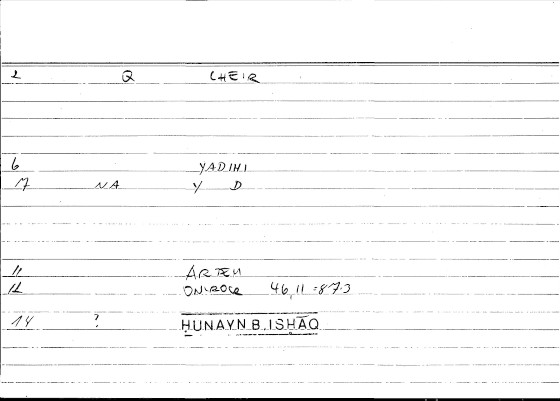 2 Q CHEIR
6 YADIHI
17 NA Y D
11 ARTEM
12 ONIROCR 46,11 = 87.3
14 ? ḤUNAYN B. ISḤĀQ